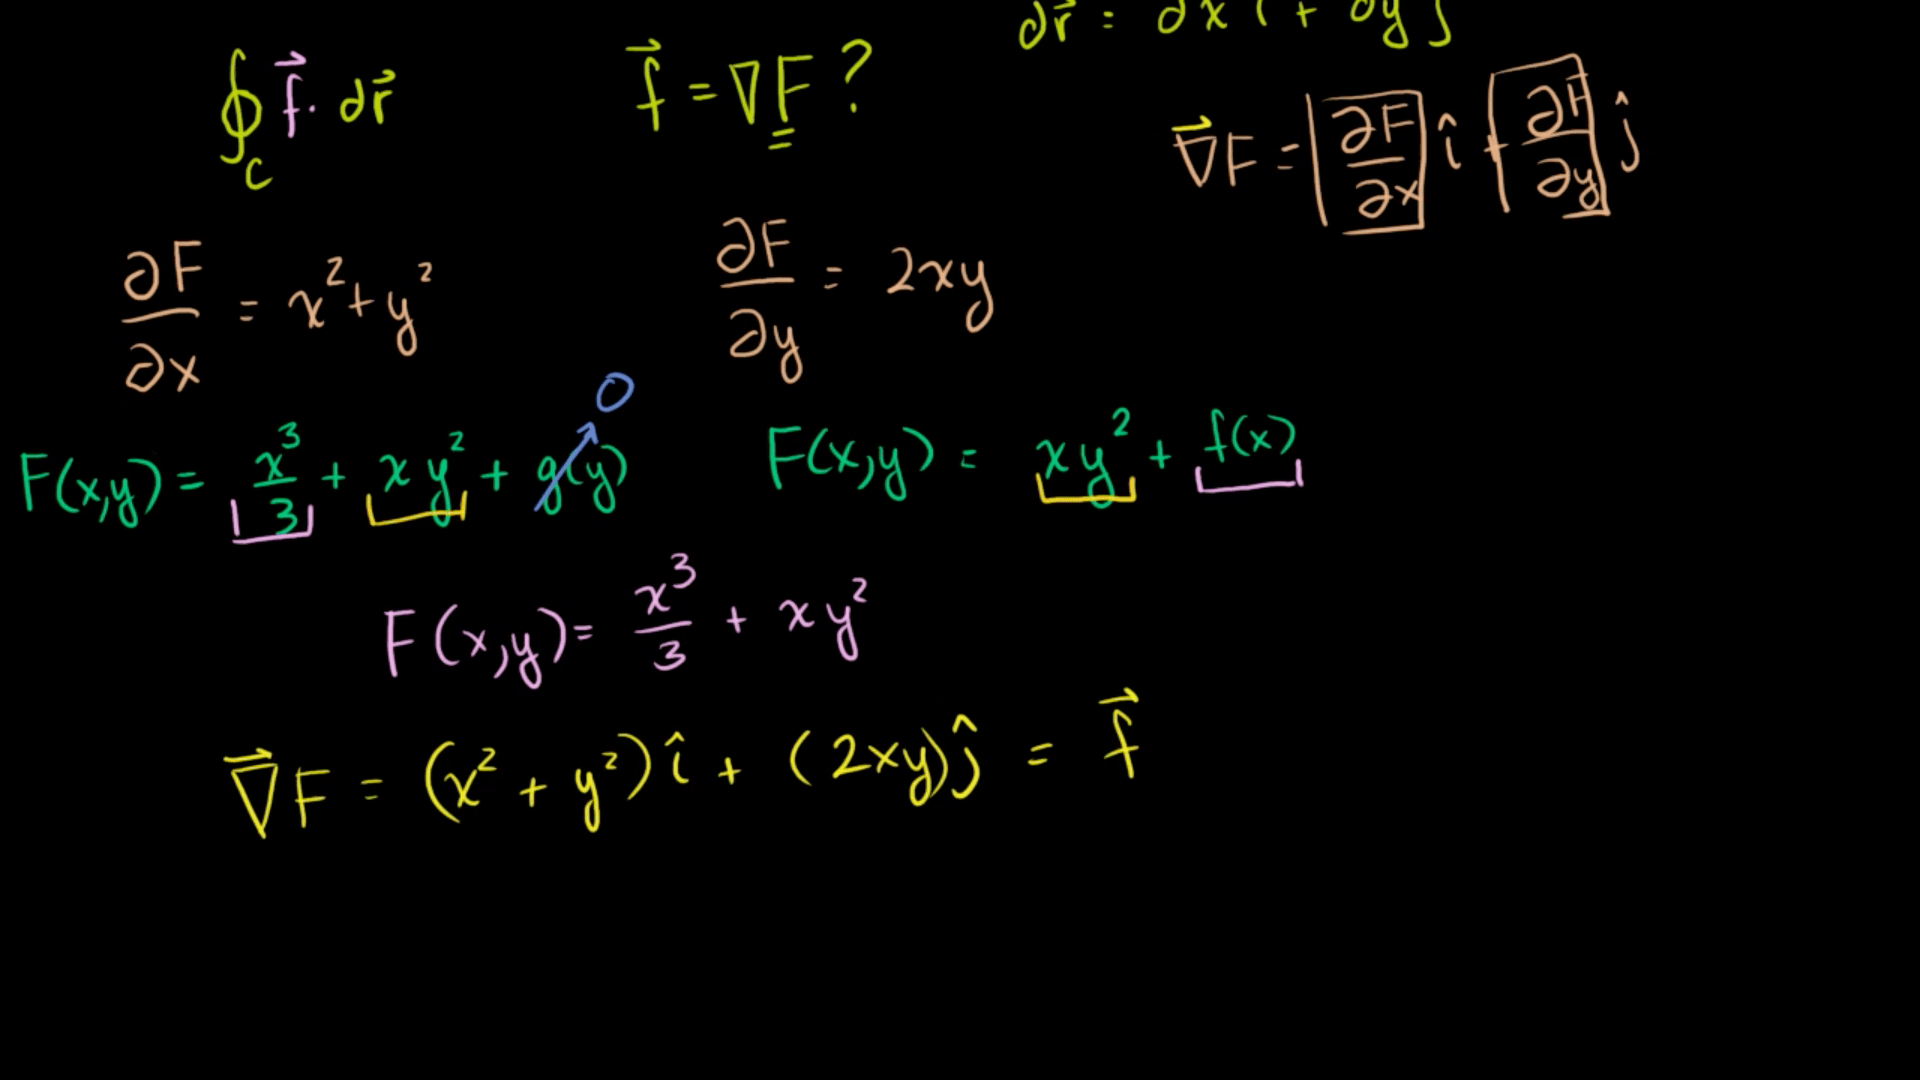 dr⃗ = dx i + dy j
∮_C f⃗ · dr⃗    f⃗ = ∇F ?
∇⃗F = ∂F/∂x î + ∂F/∂y ĵ
∂F/∂x = x² + y²    ∂F/∂y = 2xy
0
F(x,y) = x³/3 + xy² + g(y)    F(x,y) = xy² + f(x)
F(x,y) = x³/3 + xy²
∇⃗F = (x² + y²) î + (2xy) ĵ = f⃗